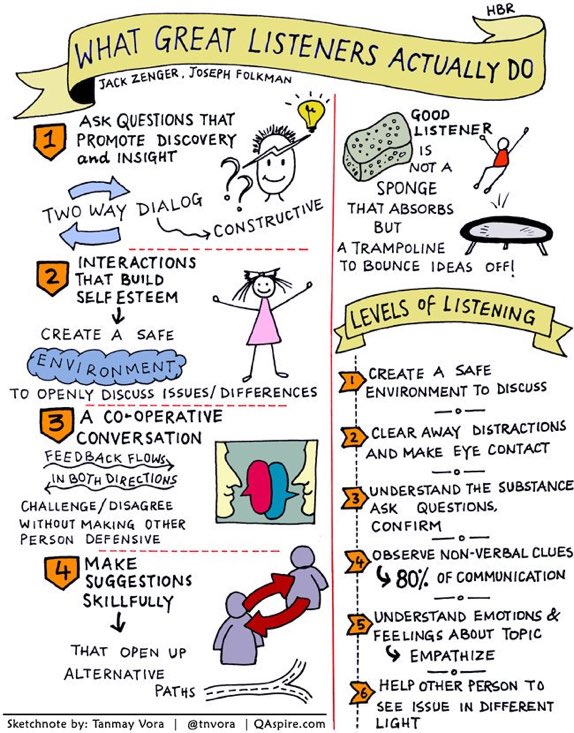 HBR
WHAT GREAT LISTENERS ACTUALLY DO
JACK ZENGER, JOSEPH FOLKMAN
1
ASK QUESTIONS THAT
PROMOTE DISCOVERY
and INSIGHT
??
TWO WAY DIALOG
CONSTRUCTIVE
2
INTERACTIONS
THAT BUILD
SELF ESTEEM
CREATE A SAFE
ENVIRONMENT
TO OPENLY DISCUSS ISSUES/DIFFERENCES
3
A CO-OPERATIVE
CONVERSATION
FEEDBACK FLOWS
IN BOTH DIRECTIONS
CHALLENGE/DISAGREE
WITHOUT MAKING OTHER
PERSON DEFENSIVE
4
MAKE
SUGGESTIONS
SKILLFULLY
THAT OPEN UP
ALTERNATIVE
PATHS
GOOD
LISTENER
IS
NOT A
SPONGE
THAT ABSORBS
BUT
A TRAMPOLINE
TO BOUNCE IDEAS OFF!
LEVELS OF LISTENING
1 CREATE A SAFE
ENVIRONMENT TO DISCUSS
2 CLEAR AWAY DISTRACTIONS
AND MAKE EYE CONTACT
3 UNDERSTAND THE SUBSTANCE
ASK QUESTIONS,
CONFIRM
4 OBSERVE NON-VERBAL CLUES
80% OF COMMUNICATION
5 UNDERSTAND EMOTIONS &
FEELINGS ABOUT TOPIC
EMPATHIZE
6 HELP OTHER PERSON TO
SEE ISSUE IN DIFFERENT
LIGHT
Sketchnote by: Tanmay Vora | @tnvora | QAspire.com